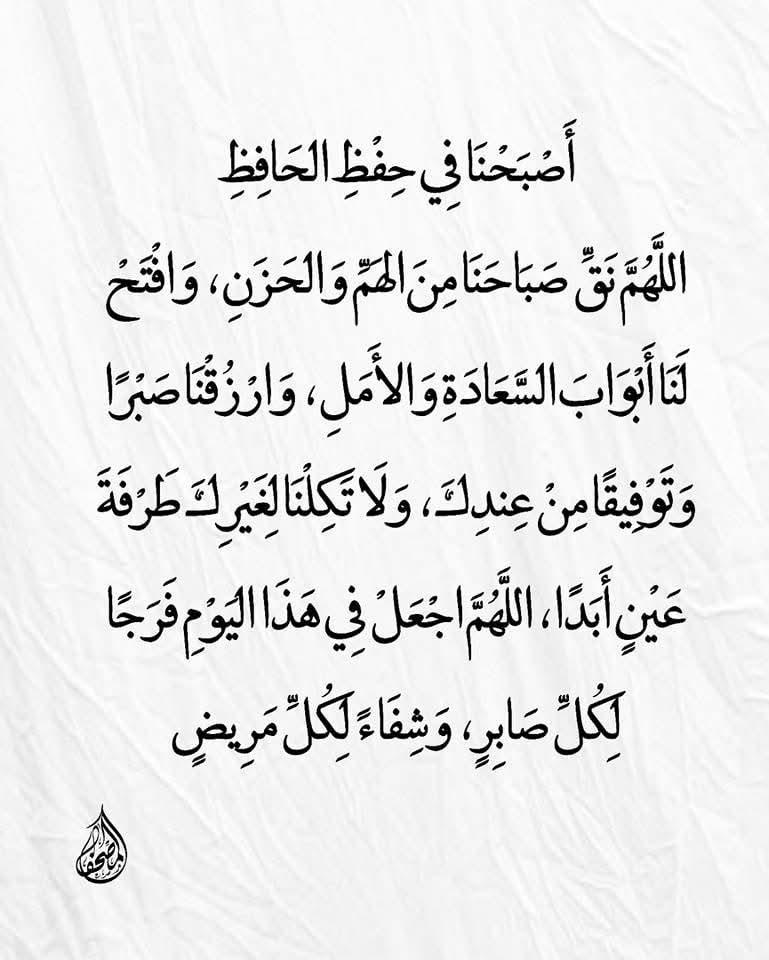 أَصْبَحْنَا فِي حِفْظِ الحَافِظِ
اللَّهُمَّ نَقِّ صَبَاحَنَا مِنَ الهَمِّ وَالحَزَنِ، وَافْتَحْ
لَنَا أَبْوَابَ السَّعَادَةِ وَالأَمَلِ، وَارْزُقْنَا صَبْرًا
وَتَوْفِيقًا مِنْ عِندِكَ، وَلَا تَكِلْنَا لِغَيْرِكَ طَرْفَةَ
عَيْنٍ أَبَدًا، اللَّهُمَّ اجْعَلْ فِي هَذَا اليَوْمِ فَرَجًا
لِكُلِّ صَابِرٍ، وَشِفَاءً لِكُلِّ مَرِيضٍ